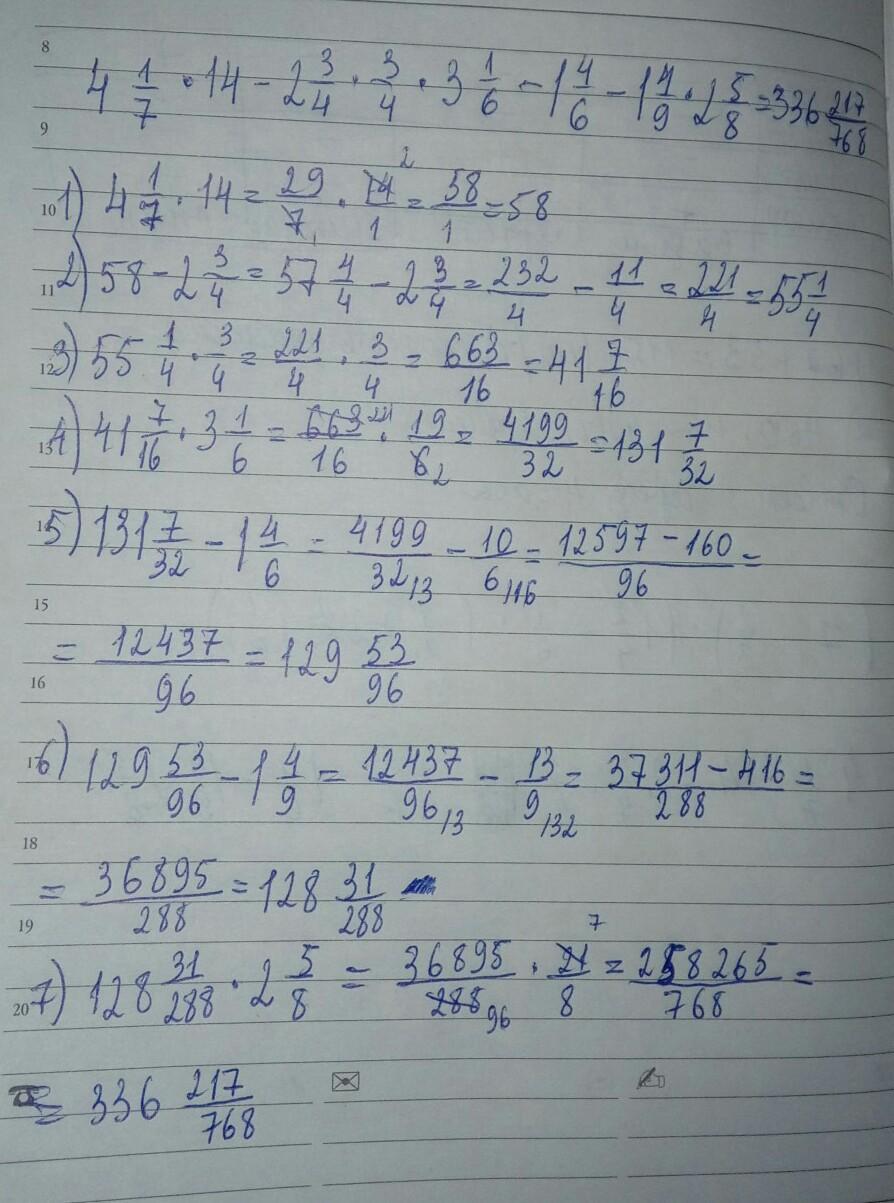 8
4 1/7 · 14 - 2 3/4 · 3/4 · 3 1/6 - 1 4/6 - 1 4/9 · 2 5/8 = 336 217/768
9
10 1) 4 1/7 · 14 = 29/7 1 · 14/1 2 = 58/1 = 58
11 2) 58 - 2 3/4 = 57 4/4 - 2 3/4 = 232/4 - 11/4 = 221/4 = 55 1/4
12 3) 55 1/4 · 3/4 = 221/4 · 3/4 = 663/16 = 41 7/16
13 4) 41 7/16 · 3 1/6 = 663/16 221 · 19/6 2 = 4199/32 = 131 7/32
14 5) 131 7/32 - 1 4/6 = 4199/32 /3 - 10/6 /16 = 12597 - 160/96 =
15
16 = 12437/96 = 129 53/96
17 6) 129 53/96 - 1 4/9 = 12437/96 /3 - 13/9 /32 = 37311 - 416/288 =
18
19 = 36895/288 = 128 31/288
20 7) 128 31/288 · 2 5/8 = 36895/288 96 · 21/8 7 = 258265/768 =
= 336 217/768